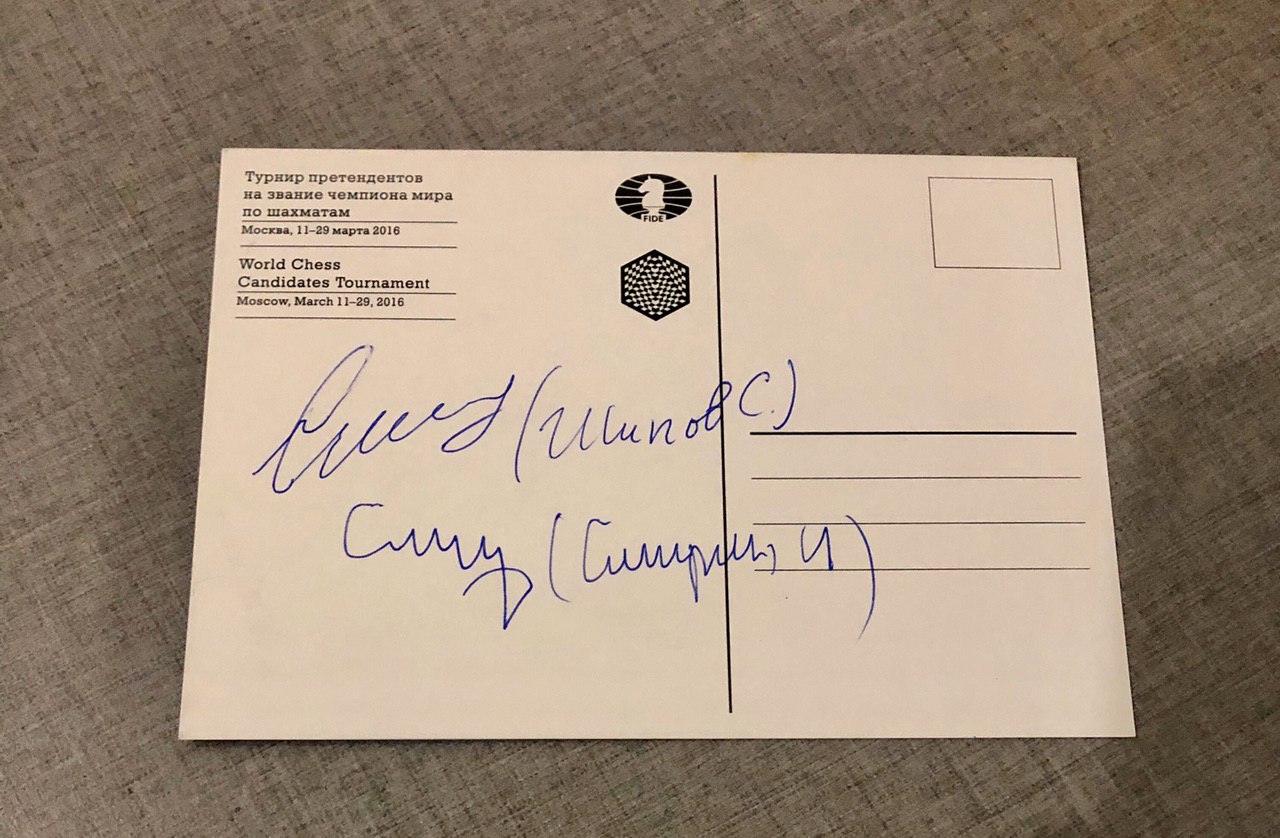 Турнир претендентов
на звание чемпиона мира
по шахматам
Москва, 11–29 марта 2016
World Chess
Candidates Tournament
Moscow, March 11–29, 2016
FIDE
(Шипов С.)
(Смирин, И)